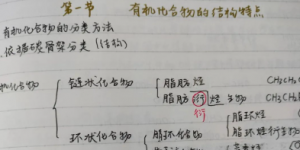 第一节 有机化合物的结构特点
有机化合物的分类方法
依据碳骨架分类（结构）
机化合物
链状化合物
脂肪烃 CH₃CH₃
脂肪衍烃生物 CH₃CH₂
衍
环状化合物
脂环化合物
脂环烃
脂环烃衍生物